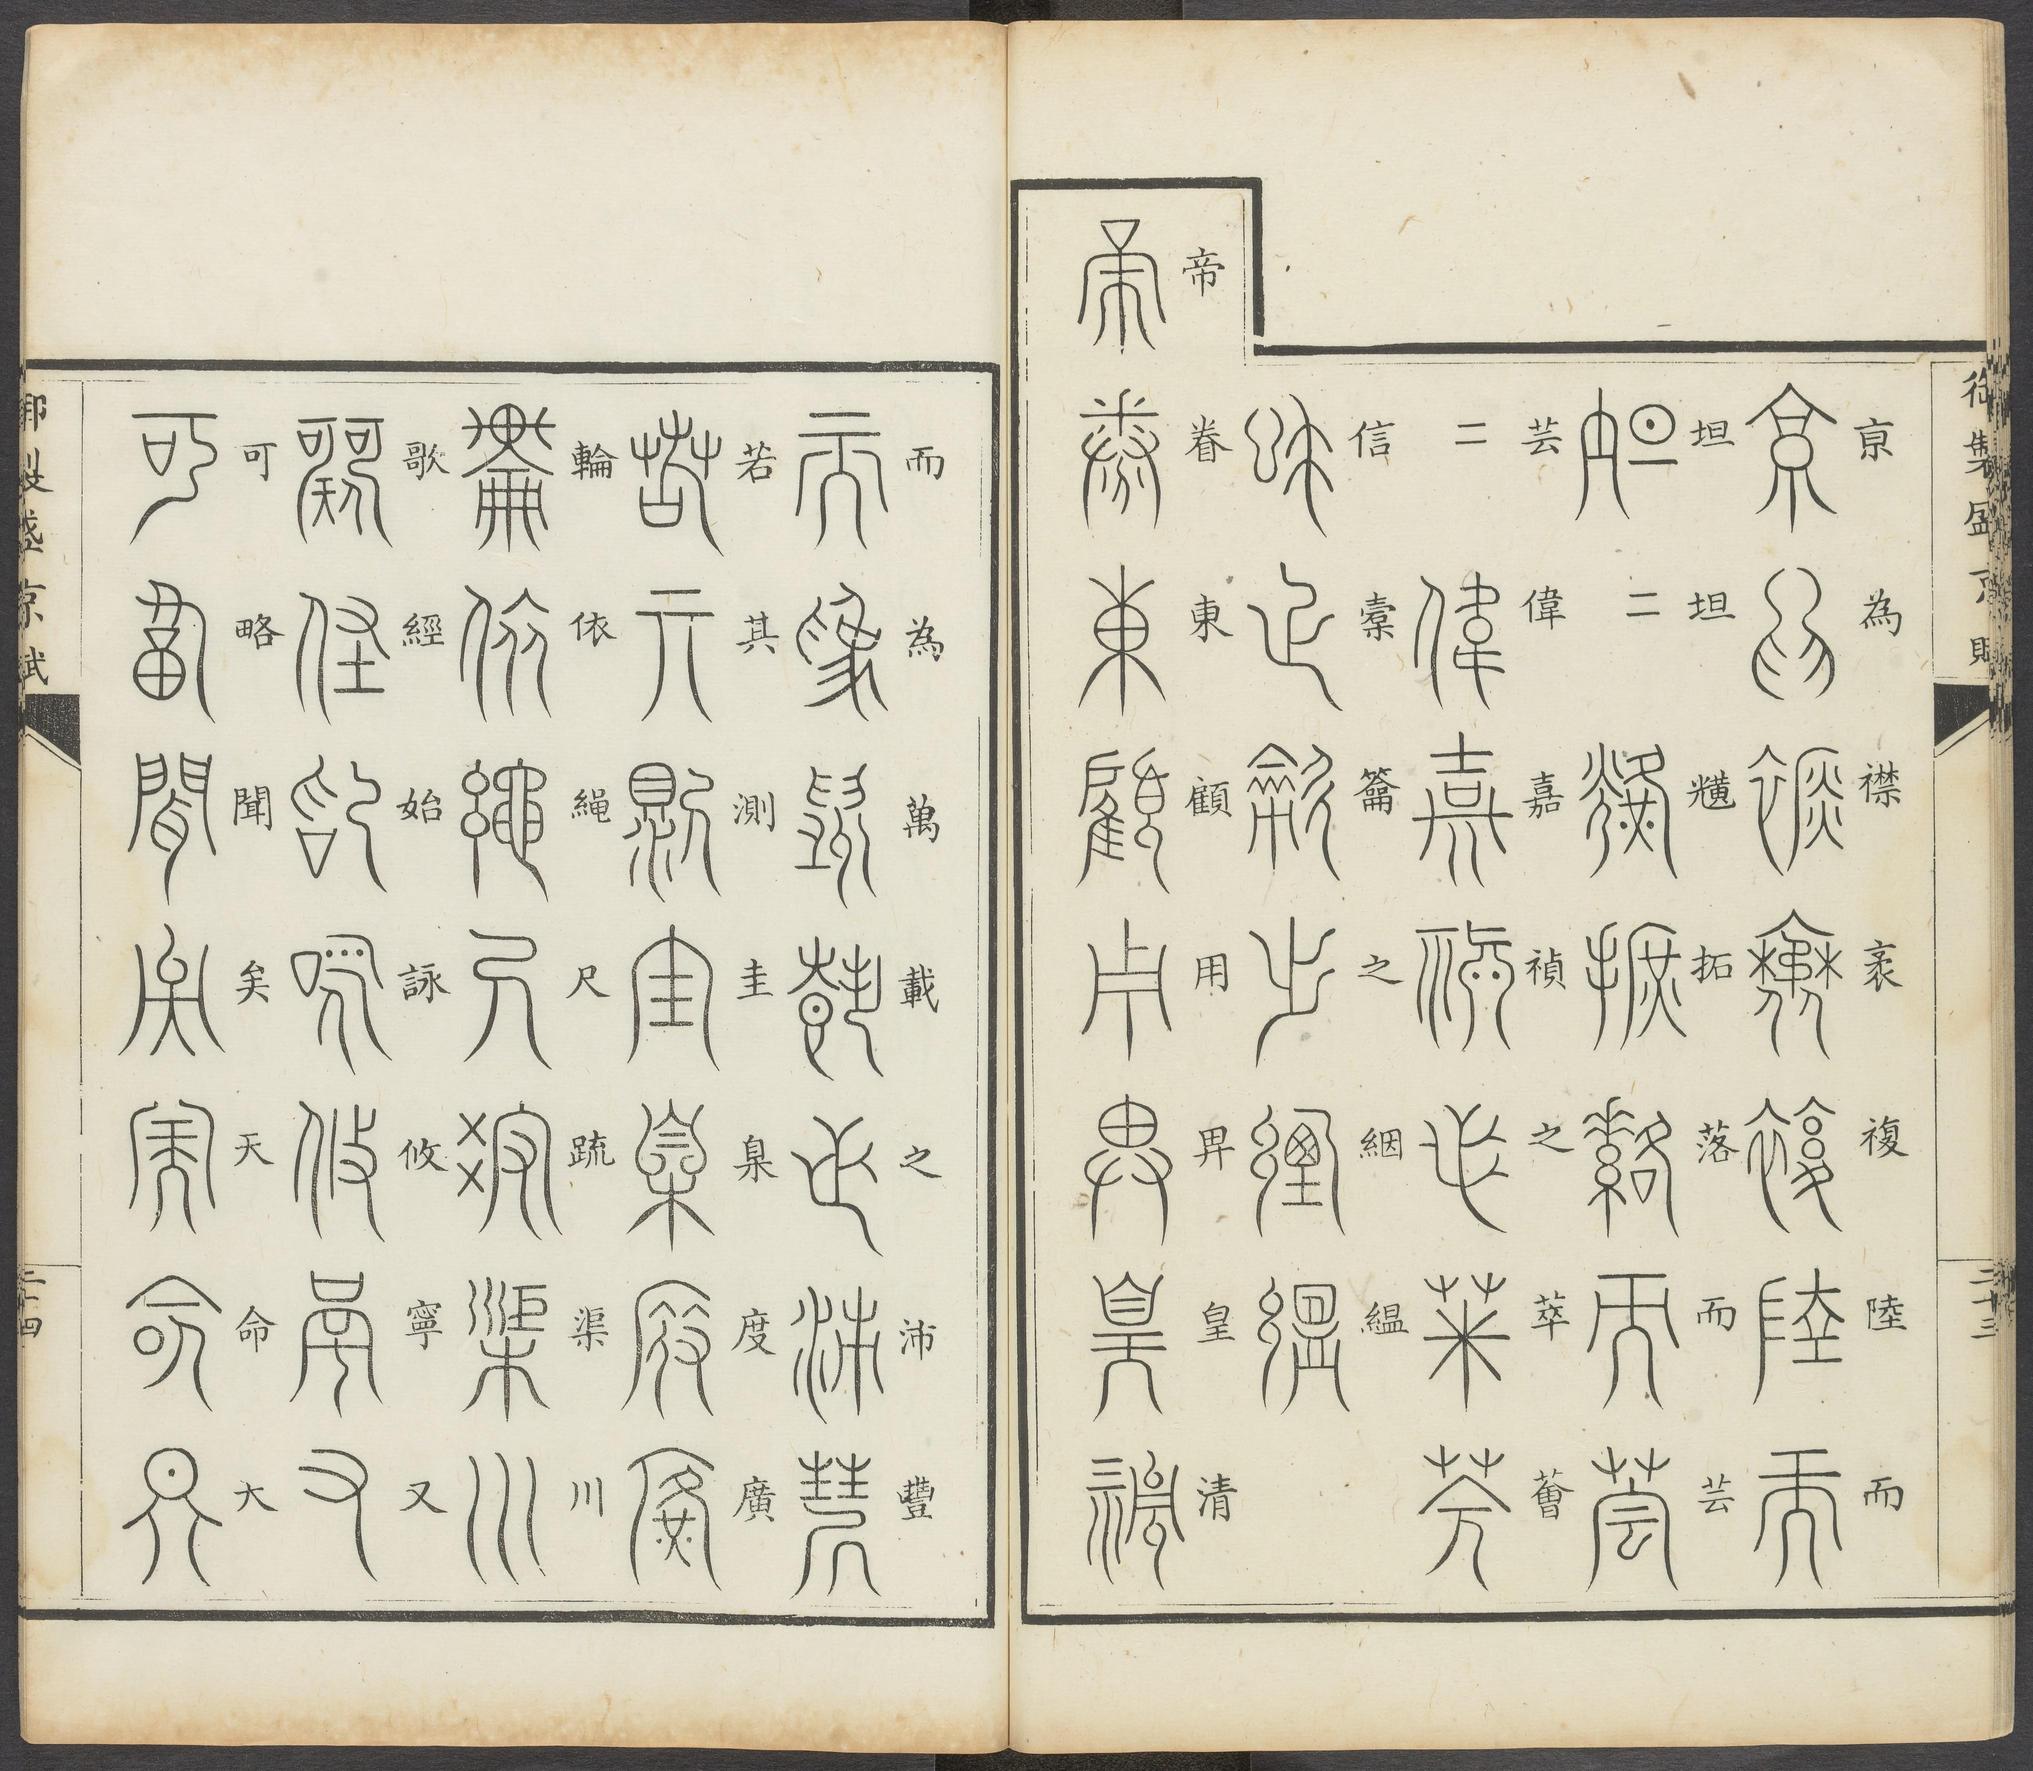 御製盛京賦
二十三
亰為襟袤複陸而
坦坦黋拓落而芸
芸偉嘉禎之萃薈
信橐籥之絪縕
帝眷東顧用畀皇清
而為萬載之沛豐
若其測圭臬度廣
輪依繩尺疏渠川
歌經始詠攸寧又
可略聞矣天命大
御製盛京賦
二十四